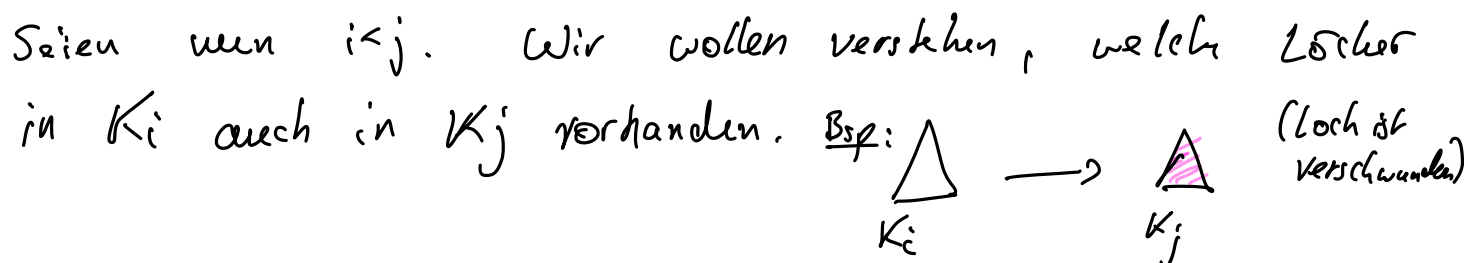 Seien nun i<j. Wir wollen verstehen, welche Löcher
in Ki auch in Kj vorhanden. Bsp: (Loch ist
verschwunden)
Ki Kj